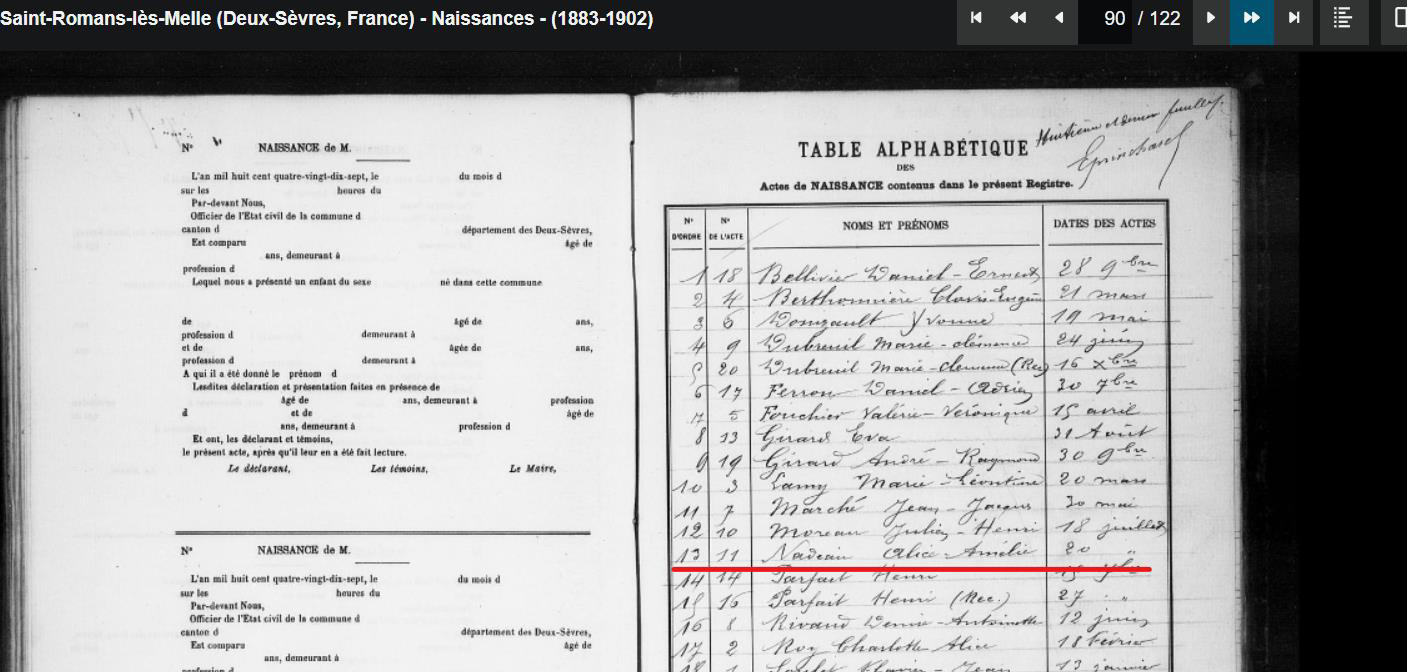 Saint-Romans-lès-Melle (Deux-Sèvres, France) - Naissances - (1883-1902)
90 / 122
N° NAISSANCE de M.
L'an mil huit cent quatre-vingt-dix-sept, le du mois d
sur les heures du
Par-devant Nous,
Officier de l'Etat civil de la commune d
canton d département des Deux-Sèvres,
Est comparu âgé de
ans, demeurant à
profession d
Lequel nous a présenté un enfant du sexe né dans cette commune
de âgé de ans,
profession d demeurant à
et de âgée de ans,
profession d demeurant à
A qui il a été donné le prénom d
Lesdites déclaration et présentation faites en présence de
âgé de ans, demeurant à profession
d et de âgé de
ans, demeurant à profession d
Et ont, les déclarant et témoins,
le présent acte, après qu'il leur en a été fait lecture.
Le déclarant, Les témoins, Le Maire,
N° NAISSANCE de M.
L'an mil huit cent quatre-vingt-dix-sept, le du mois d
sur les heures du
Par-devant Nous,
Officier de l'Etat civil de la commune d
canton d département des Deux-Sèvres,
Est comparu âgé de
ans, demeurant à
Huitième et dernier feuillet.
TABLE ALPHABÉTIQUE
DES
Actes de NAISSANCE contenus dans le présent Registre.
N° D'ORDRE N° DE L'ACTE NOMS ET PRÉNOMS DATES DES ACTES
1 18 Bellivier Daniel-Ernest 28 9bre
2 4 Berthonnière Clovis-Eugène 21 mars
3 6 Yvonne 19 mai
4 9 Dubreuil Marie-clémence 24 juin
5 20 Dubreuil Marie-clémence (Rec) 16 Xbre
6 17 Ferron Daniel-Adrien 30 7bre
7 5 Fouchier Valérie-Véronique 15 avril
8 13 Girard Eva 31 Août
9 19 Girard André-Raymond 30 9bre
10 3 Lamy Marie-Léontine 20 mars
11 7 Marché Jean-Jacques 30 mai
12 10 Moreau Julien-Henri 18 juillet
13 11 Nadeau Alice-Amélie 20 "
14 14 Parfait Henri 15 7bre
15 16 Parfait Henri (Rec.) 27 "
16 8 Rivaud -Antoinette 12 juin
17 2 Roy Charlotte Alice 18 Février
18 1 Jean 13 janvier